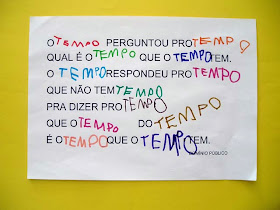 O TEMPO PERGUNTOU PRO TEMPO
QUAL É O TEMPO QUE O TEMPO TEM.
O TEMPO RESPONDEU PRO TEMPO
QUE NÃO TEM TEMPO
PRA DIZER PRO TEMPO
QUE O TEMPO DO TEMPO
É O TEMPO QUE O TEMPO TEM.
DOMÍNIO PÚBLICO